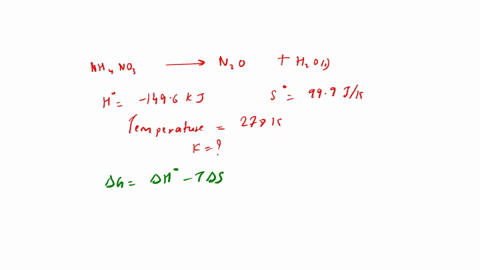 NH4NO3 → N2O + H2O(l)
H° = -149.6 KJ S° = 99.9 J/K
Temperature = 278 K
K = ?
ΔG = ΔH° - TΔS